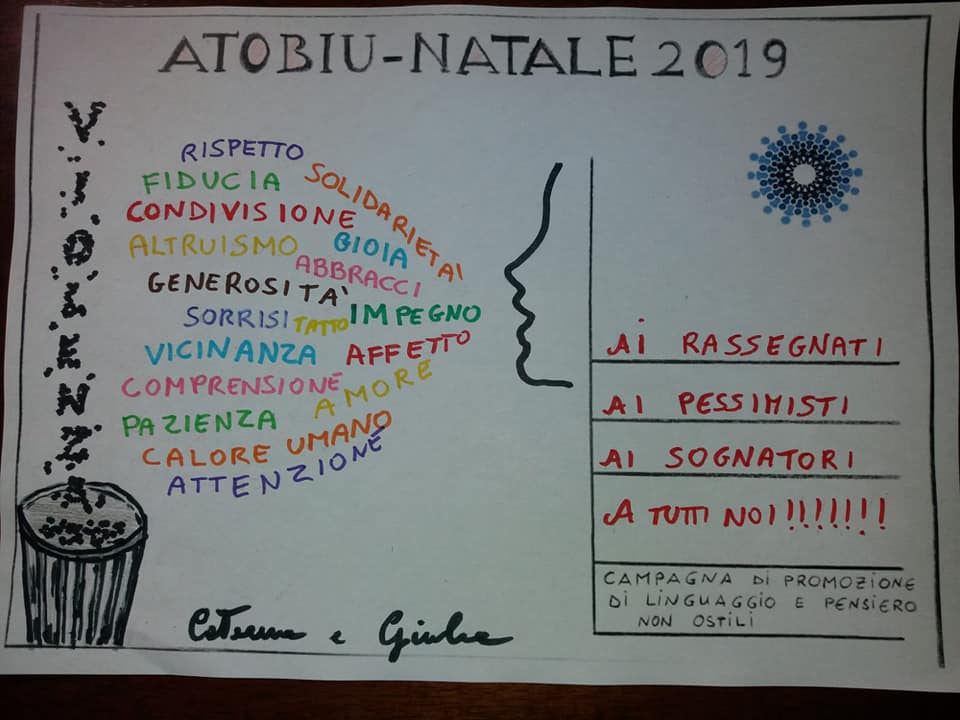 ATOBIU-NATALE 2019
VIOLENZA
RISPETTO
FIDUCIA
SOLIDARIETA'
CONDIVISIONE
ALTRUISMO
GIOIA
ABBRACCI
GENEROSITA'
SORRISI
TATTO
IMPEGNO
VICINANZA
AFFETTO
COMPRENSIONE
AMORE
PAZIENZA
CALORE UMANO
ATTENZIONE
e
AI RASSEGNATI
AI PESSIMISTI
AI SOGNATORI
A TUTTI NOI!!!!!!!
CAMPAGNA DI PROMOZIONE
DI LINGUAGGIO E PENSIERO
NON OSTILI